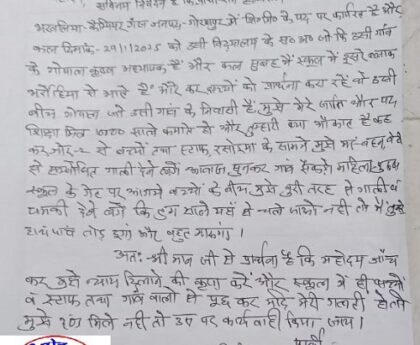 सविनय निवेदन है कि
भखलिया कैम्पियर गंज जनपद - गोरखपुर में शि०मि० के पद पर कार्यरत है और
कल दिनांक - 29/1/2025 को उसी विद्यालय के स० अ० जो कि उसी गाँव
के गोपाल कृष्ण अध्यापक है और कल सुबह में स्कूल में दूसरे
से आते है और बच्चों को प्रार्थना करा रहे थे उसी
बीच गोपाल जो उसी गाँव के निवासी है, मुझे मेरे जाति और पद
शिक्षा मित्र साले कमाते हो और तुम्हारी क्या औकात है कह
कर जोर-2 से बच्चों तथा स्टाफ, रसोइया के सामने मुझे माँ बहन बेटी
से सम्बोधित गाली देने लगे आवाज सुनकर गाँव सैकड़ो महिला पुरुष
स्कूल के गेट पर आ गये बच्चों के बीच मुझे बुरी तरह से गाली व
धमकी देने लगे कि तुम साले यहाँ से चले जाओ नही तो मैं तुम्हें
हाथ पाँव तोड़ दूंगा और बहुत मारूंगा।
अतः श्रीमान जी से प्रार्थना है कि महोदय जाँच
कर मुझे न्याय दिलाने की कृपा करें और स्कूल में ही बच्चों
व स्टाफ तथा गाँव वालों से पूछ कर यदि मेरी गलती हो तो
मुझे दण्ड मिले नही तो उस पर कार्यवाही किया जाय।
प्रार्थी